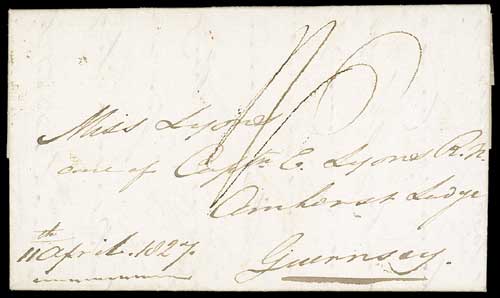 1/6
Miss Lyons
care of Captn. E. Lyons R.N.
Amherst Lodge
11th April. 1827.
Guernsey.